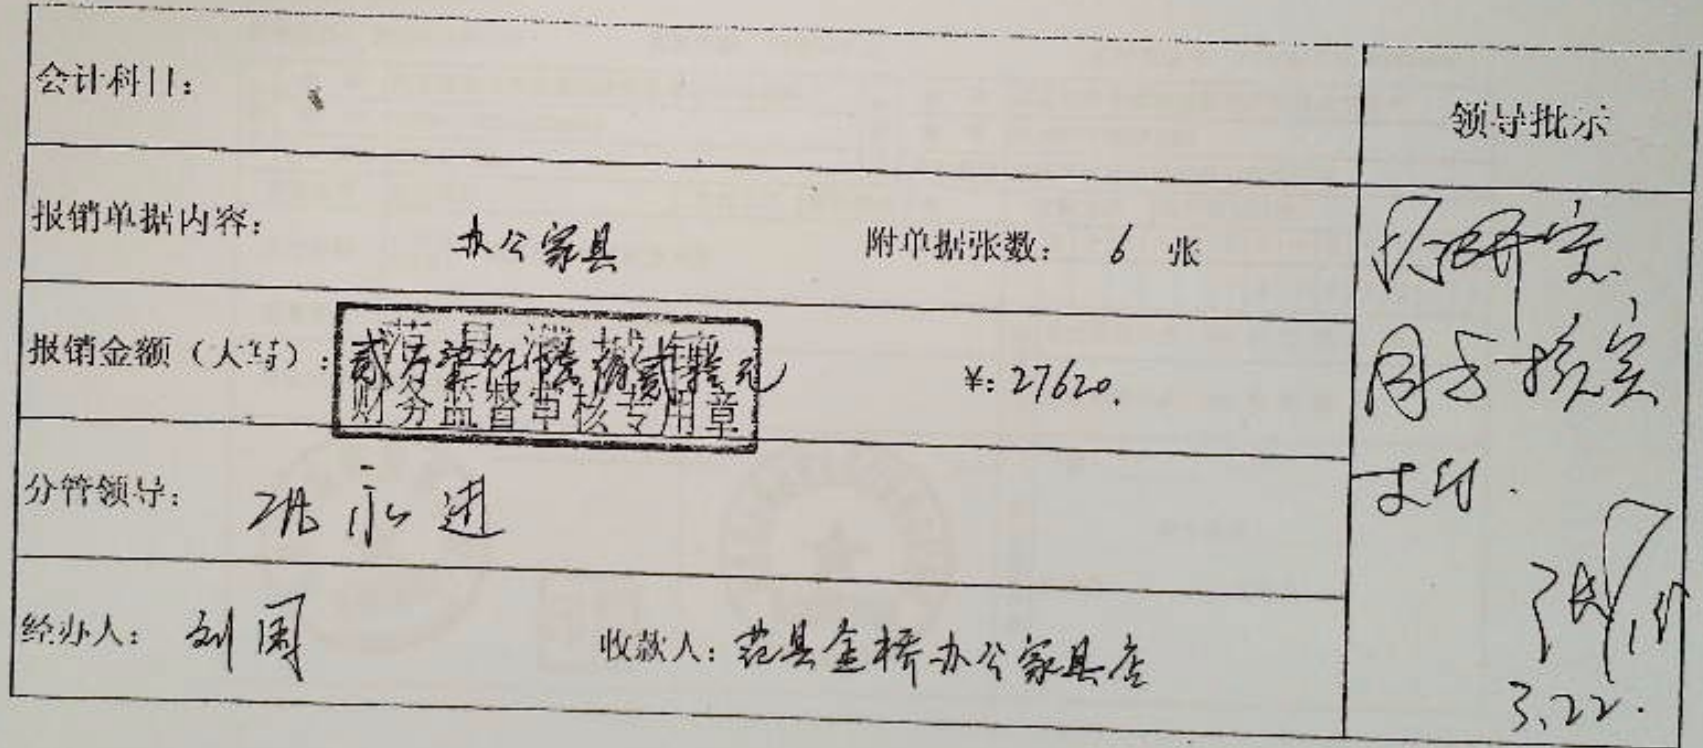 会计科目：
领导批示
报销单据内容： 办公家具 附单据张数： 6 张
报销金额（大写）： 贰万柒仟陆佰贰拾元 ¥：27620.
范县濮城镇
财务监督审核专用章
分管领导： 永进
经办人： 刘国 收款人：范县金桥办公家具店
核实
支付.
3.22.